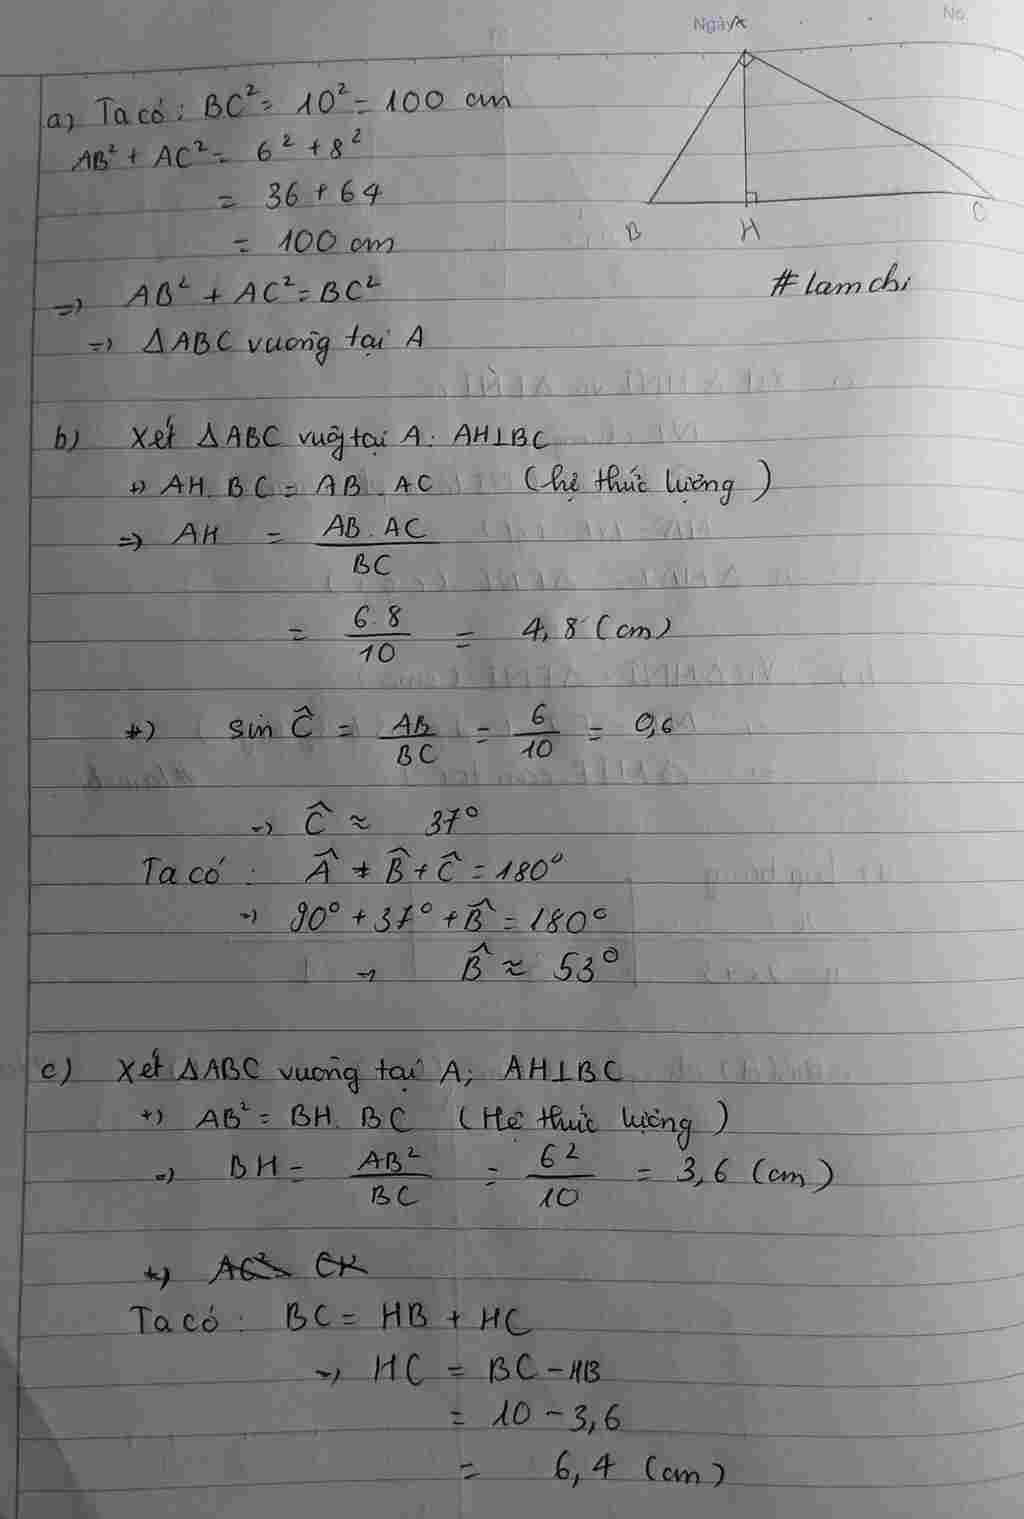 Ngày
No.
A
B
H
C
#lamchi
a) Ta có: BC² = 10² = 100 cm
AB² + AC² = 6² + 8²
= 36 + 64
= 100 cm
=> AB² + AC² = BC²
=> ΔABC vuông tại A
b) Xét ΔABC vuô tại A: AH⊥BC
+) AH. BC = AB. AC (hệ thức lượng)
=> AH = AB. AC / BC
= 6.8 / 10 = 4,8 (cm)
*) sin Ĉ = AB / BC = 6 / 10 = 0,6
=> Ĉ ≈ 37°
Ta có: Â + B̂ + Ĉ = 180°
=> 90° + 37° + B̂ = 180°
=> B̂ ≈ 53°
c) Xét ΔABC vuông tại A; AH⊥BC
+) AB² = BH. BC (Hệ thức lượng)
=> BH = AB² / BC = 6² / 10 = 3,6 (cm)
+)
Ta có: BC = HB + HC
=> HC = BC - HB
= 10 - 3,6
= 6,4 (cm)